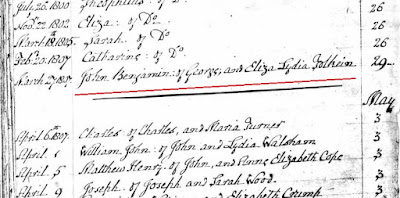 July 26. 1800 Theophilus: of Do. 26
Novr. 22. 1802 Eliza: of Do. 26
March 18. 1805 Sarah: of Do. 26
Feby. 20. 1807 Catharine: of Do. 26
March 27. John Benjamin: of George, and Eliza Lydia Jolhein 29
May
April 6th 1807. Charles: of Charles, and Maria Turner 3
April 1 William John: of John and Lydia Walsham 3
April 5 Matthew Henry: of John, and Anne Elizabeth Cope 3
April 9 Joseph: of Joseph and Sarah Wood. 3
Elizabeth Crump